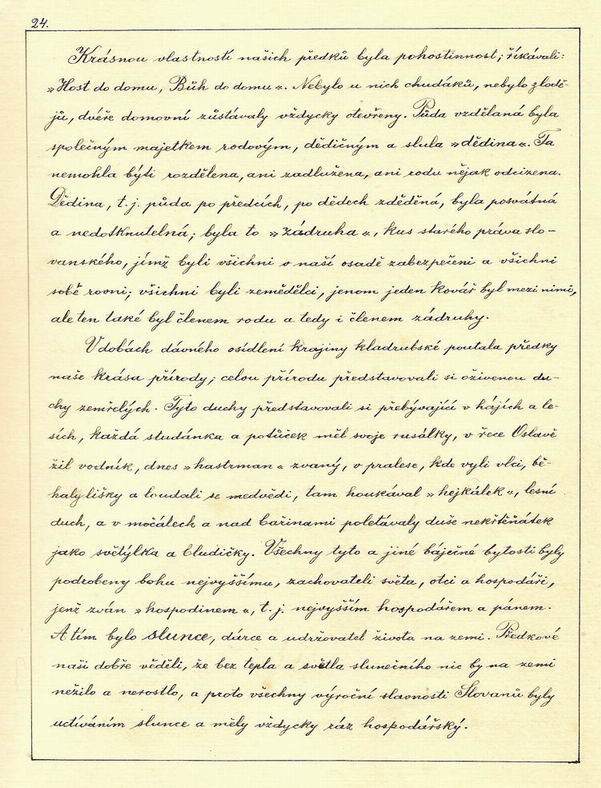 24.
Krásnou vlastností našich předků byla pohostinnost; říkávali:
„Host do domu, Bůh do domu“. Nebylo u nich chudáků, nebylo zlodě-
jů, dvéře domovní zůstávaly vždycky otevřeny. Půda vzdělaná byla
společným majetkem rodovým, dědičným a slula „dědina“. Ta
nemohla býti rozdělena, ani zadlužena, ani rodu nějak odcizena.
Dědina, t. j. půda po předcích, po dědech zděděná, byla posvátná
a nedotknutelná; byla to „zádruha“, kus starého práva slo-
vanského, jímž byli všichni v naší osadě zabezpečeni a všichni
sobě rovni; všichni byli zemědělci, jenom jeden kovář byl mezi nimi,
ale ten také byl členem rodu a tedy i členem zádruhy.
V dobách dávného osídlení krajiny kladrubské poutala předky
naše krása přírody; celou přírodu představovali si oživenou du-
chy zemřelých. Tyto duchy představovali si přebývající v hájích a le-
sích, každá studánka a potůček měl svoje rusálky, v řece Oslavě
žil vodník, dnes „hastrman“ zvaný, v pralese, kde vyli vlci, bě-
haly lišky a loudali se medvědi, tam houkával „hejkálek“, lesní
duch, a v močálech a nad bařinami poletávaly duše nekřtěňátek
jako světýlka a bludičky. Všechny tyto a jiné báječné bytosti byly
podrobeny bohu nejvyššímu, zachovateli světa, otci a hospodáři,
jenž zván „hospodinem“, t. j. nejvyšším hospodářem a pánem.
A tím bylo slunce, dárce a udržovatel života na zemi. Předkové
naši dobře věděli, že bez tepla a světla slunečního nic by na zemi
nežilo a nerostlo, a proto všechny výroční slavnosti Slovanů byly
uctíváním slunce a měly vždycky ráz hospodářský.